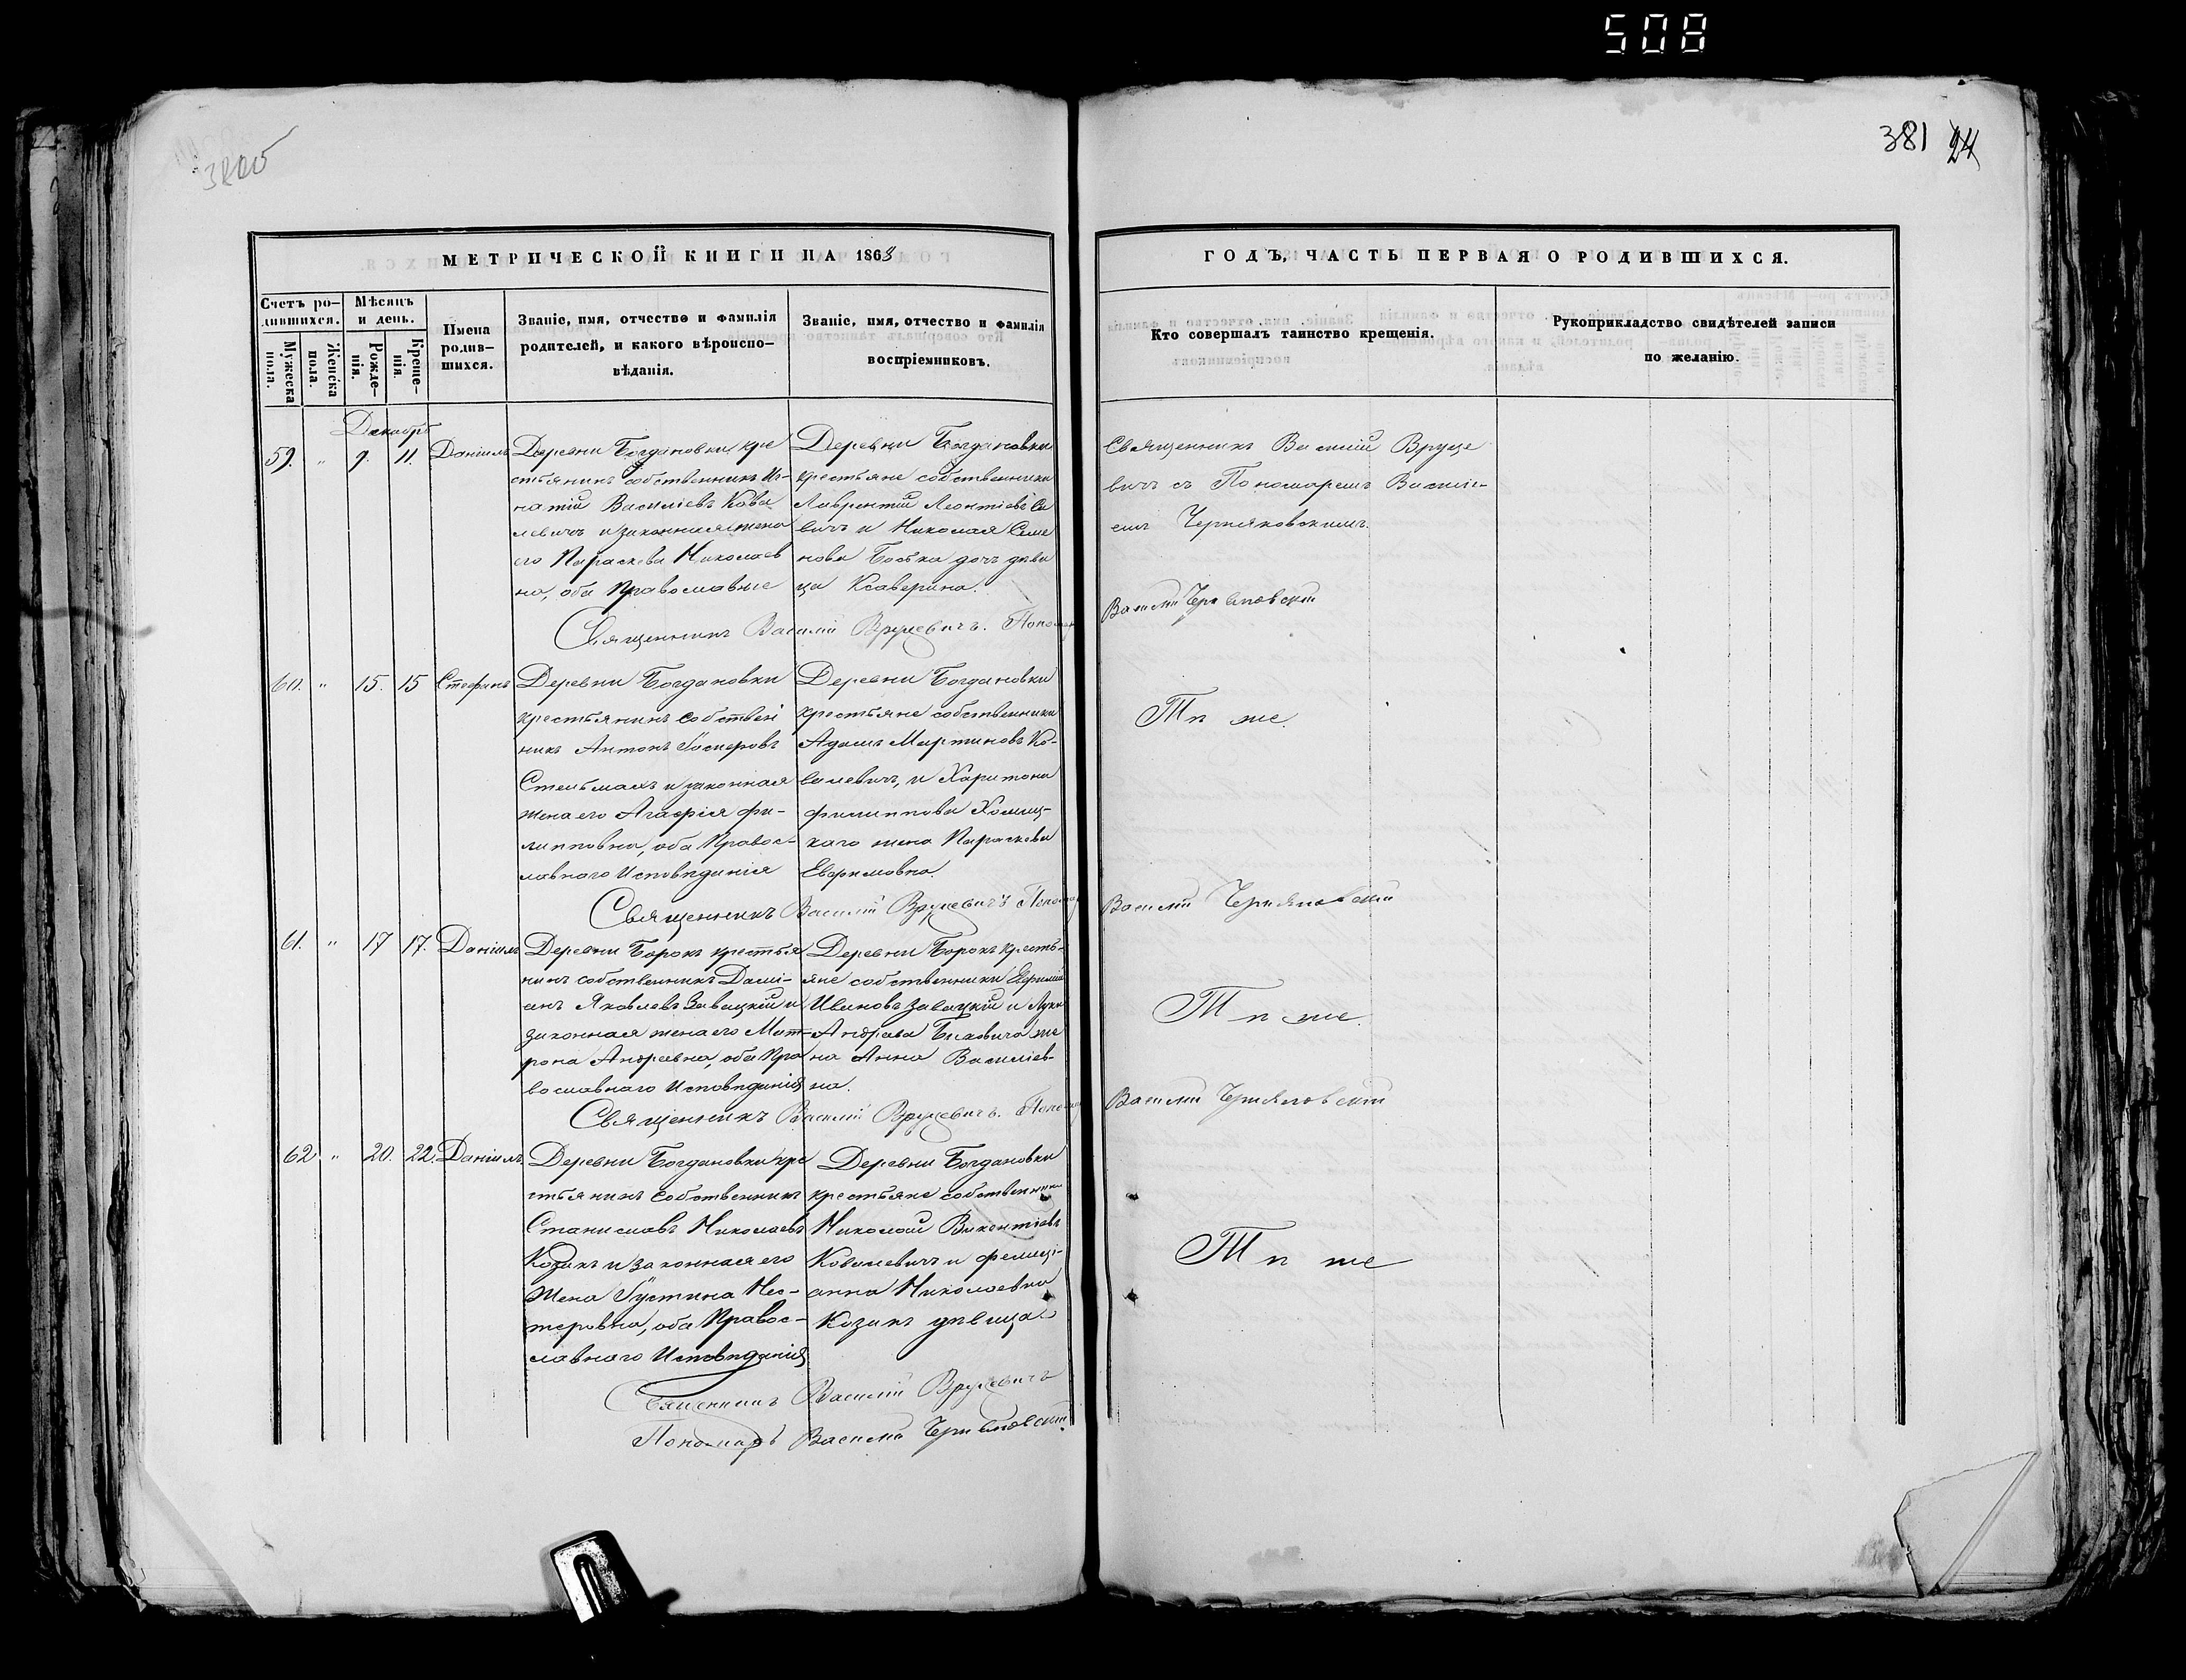 508
381 24
МЕТРИЧЕСКОЙ КНИГИ НА 1863
ГОДЪ, ЧАСТЬ ПЕРВАЯ О РОДИВШИХСЯ.
Счетъ ро-
дившихся.
Мужеска
пола.
Женска
пола.
Мѣсяцъ
и день.
Рожде-
нія.
Креще-
нія.
Имена
родив-
шихся.
Званіе, имя, отчество и фамилія
родителей, и какого вѣроиспо-
вѣданія.
Званіе, имя, отчество и фамилія
воспріемниковъ.
Кто совершалъ таинство крещенія.
Рукоприкладство свидѣтелей записи
по желанію.
Декабрь
59. " 9. 11. Даніилъ
Деревни Богдановки кре
стьянинъ собственникъ Иг-
натій Василіевъ Кова
левичъ и законная жена
его Параскева Николаев
на, оба Православные
Деревни Богдановки
крестьяне собственники
Лаврентій Леонтіевъ
вичъ и Николая Семе
нова дочь дѣви
ца Ксаверина.
Священникъ Василій Вруце
вичъ съ Пономаремъ Василі-
емъ Черняковскимъ.
Священникъ Василій Вруцевичъ. Поном
Василій Черняковскій
60. " 15. 15 Стефанъ
Деревни Богдановки
крестьянинъ собствен
никъ Антонъ
Стельмахъ и законная
жена его Агафія Фи-
липповна, оба Правос-
лавнаго Исповѣданія
Деревни Богдановки
крестьяне собственники
Адамъ Мартиновъ Ко-
валевичъ, и Харитона
Филиппова Хомиц-
каго жена Параскева
Евфимовна.
Тѣ же.
Священникъ Василій Вруцевичъ Поном
Василій Черняковскій
61. " 17 17. Даніилъ
Деревни Борокъ крестья
нинъ собственникъ Дамі-
анъ Яковлевъ Завацкій и
законная жена его Мат-
рона Андреевна, оба Пра
вославнаго Исповѣданія
Деревни Борокъ кресть-
яне собственники Евфимій
Ивановъ Завацкій и Луки
Андреева же
на Анна Василіев-
на.
Тѣ же.
Священникъ Василій Вруцевичъ. Поном
Василій Черняковскій
62 " 20. 22. Даніилъ
Деревни Богдановки кре
стьянинъ собственникъ
Станиславъ Николаевъ
Козакъ и законная его
жена Іустина Нес-
теровна, оба Правос-
лавнаго Исповѣданія
Деревни Богдановки
крестьяне собственники
Николай Викентіевъ
Ковалевичъ и Фелиці-
анна Николаевна
Козакъ дѣвица
Тѣ же
Священникъ Василій Вруцевичъ
Пономарь Василій Черняковскій.